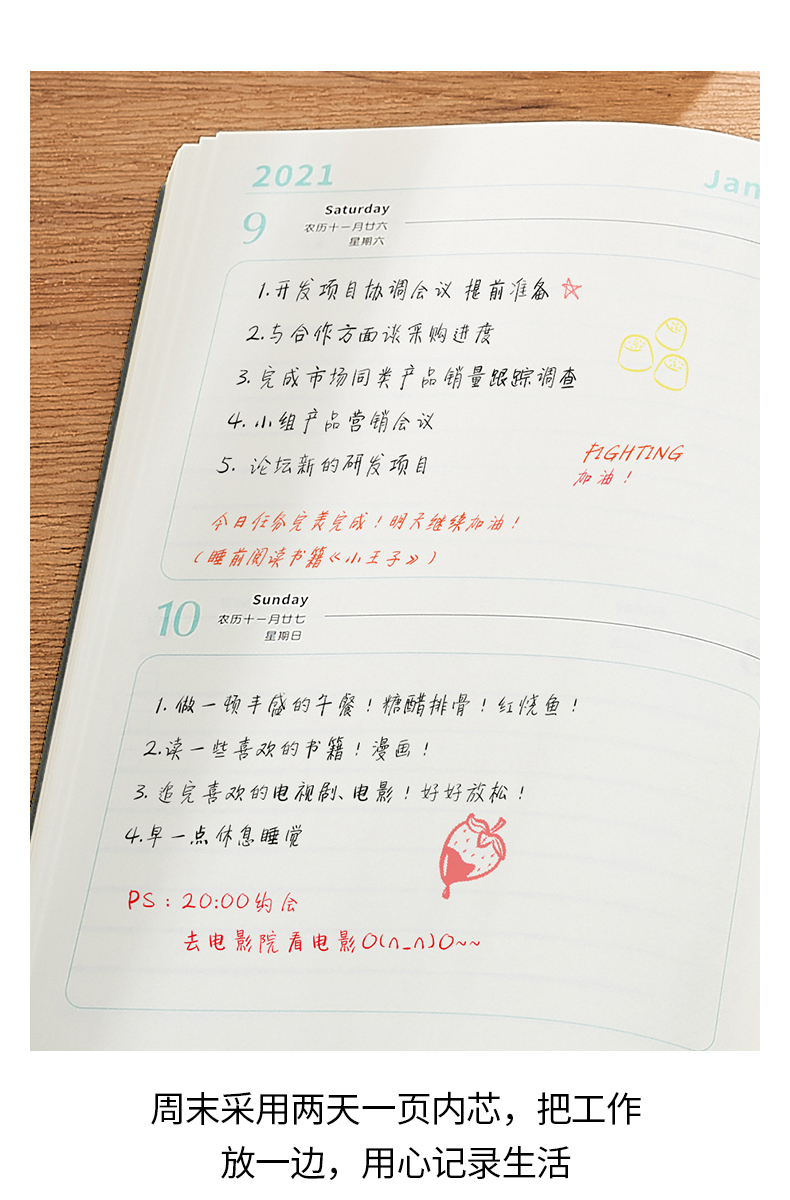 2021
Jan
9
Saturday
农历十一月廿六
星期六
1.开发项目协调会议 提前准备
2.与合作方面谈采购进度
3.完成市场同类产品销量跟踪调查
4.小组产品营销会议
5. 论坛新的研发项目
FIGHTING
加油！
今日任务完美完成！明天继续加油！
（睡前阅读书籍《小王子》）
10
Sunday
农历十一月廿七
星期日
1.做一顿丰盛的午餐！糖醋排骨！红烧鱼！
2.读一些喜欢的书籍！漫画！
3.追完喜欢的电视剧、电影！好好放松！
4.早一点休息睡觉
PS：20:00约会
去电影院看电影O(∩_∩)O~~
周末采用两天一页内芯，把工作
放一边，用心记录生活